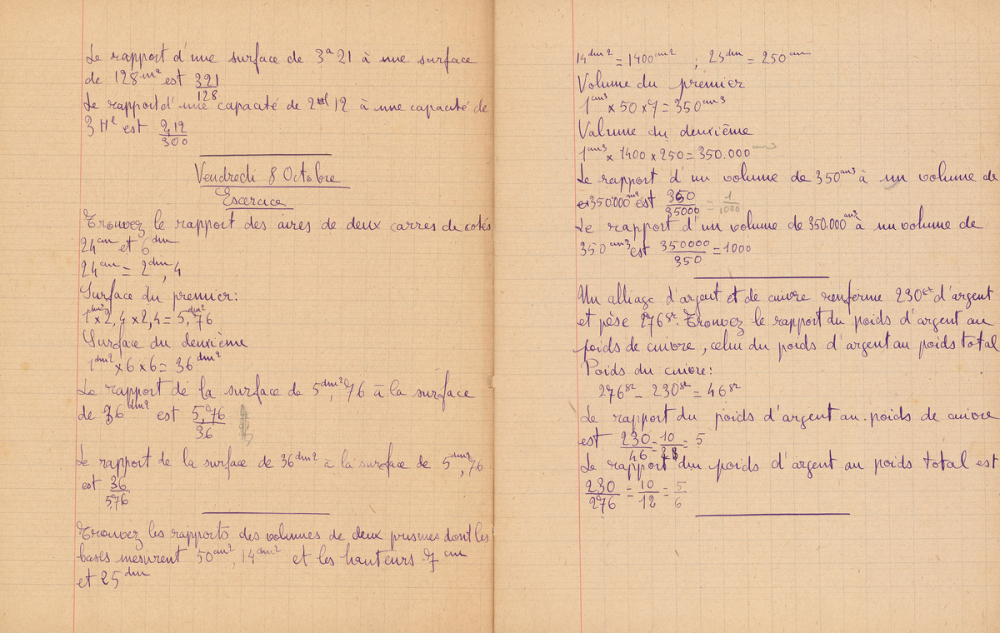 Le rapport d'une surface de 3ᵃ 21 à une surface
de 128 m² est 321/128
Le rapport d'une capacité de 2ʰˡ 12 à une capacité de
3 Hˡ est 2,12/300
Vendredi 8 Octobre
Exercice
Trouvez le rapport des aires de deux carrés de cotés
24ᶜᵐ et 6ᵈᵐ
24ᶜᵐ = 2ᵈᵐ,4
Surface du premier:
1ᵈᵐ² x 2,4 x 2,4 = 5,ᵈᵐ²76
Surface du deuxième
1ᵈᵐ² x 6 x 6 = 36ᵈᵐ²
Le rapport de la surface de 5ᵈᵐ²,76 à la surface
de 36ᵈᵐ² est 5,76/36
Le rapport de la surface de 36ᵈᵐ² à la surface de 5ᵈᵐ²,76
est 36/5,76
Trouvez les rapports des volumes de deux prismes dont les
bases mesurent 50ᶜᵐ², 14ᵈᵐ² et les hauteurs 7ᶜᵐ
et 25ᵈᵐ
14ᵈᵐ² = 1400ᶜᵐ² ; 25ᵈᵐ = 250ᶜᵐ
Volume du premier
1ᶜᵐ³ x 50 x 7 = 350ᶜᵐ³
Volume du deuxième
1ᶜᵐ³ x 1400 x 250 = 350.000ᶜᵐ³
Le rapport d'un volume de 350ᶜᵐ³ à un volume de
350000ᶜᵐ³ est 350/35000 = 1/1000
Le rapport d'un volume de 350.000ᶜᵐ³ à un volume de
350ᶜᵐ³ est 350000/350 = 1000
Un alliage d'argent et de cuivre renferme 230ᵍʳ d'argent
et pèse 276ᵍʳ. Trouvez le rapport du poids d'argent au
poids de cuivre, celui du poids d'argent au poids total
Poids du cuivre:
276ᵍʳ - 230ᵍʳ = 46ᵍʳ
Le rapport du poids d'argent au poids de cuivre
est 230/46 = 10/ = 5
Le rapport du poids d'argent au poids total est
230/276 = 10/12 = 5/6